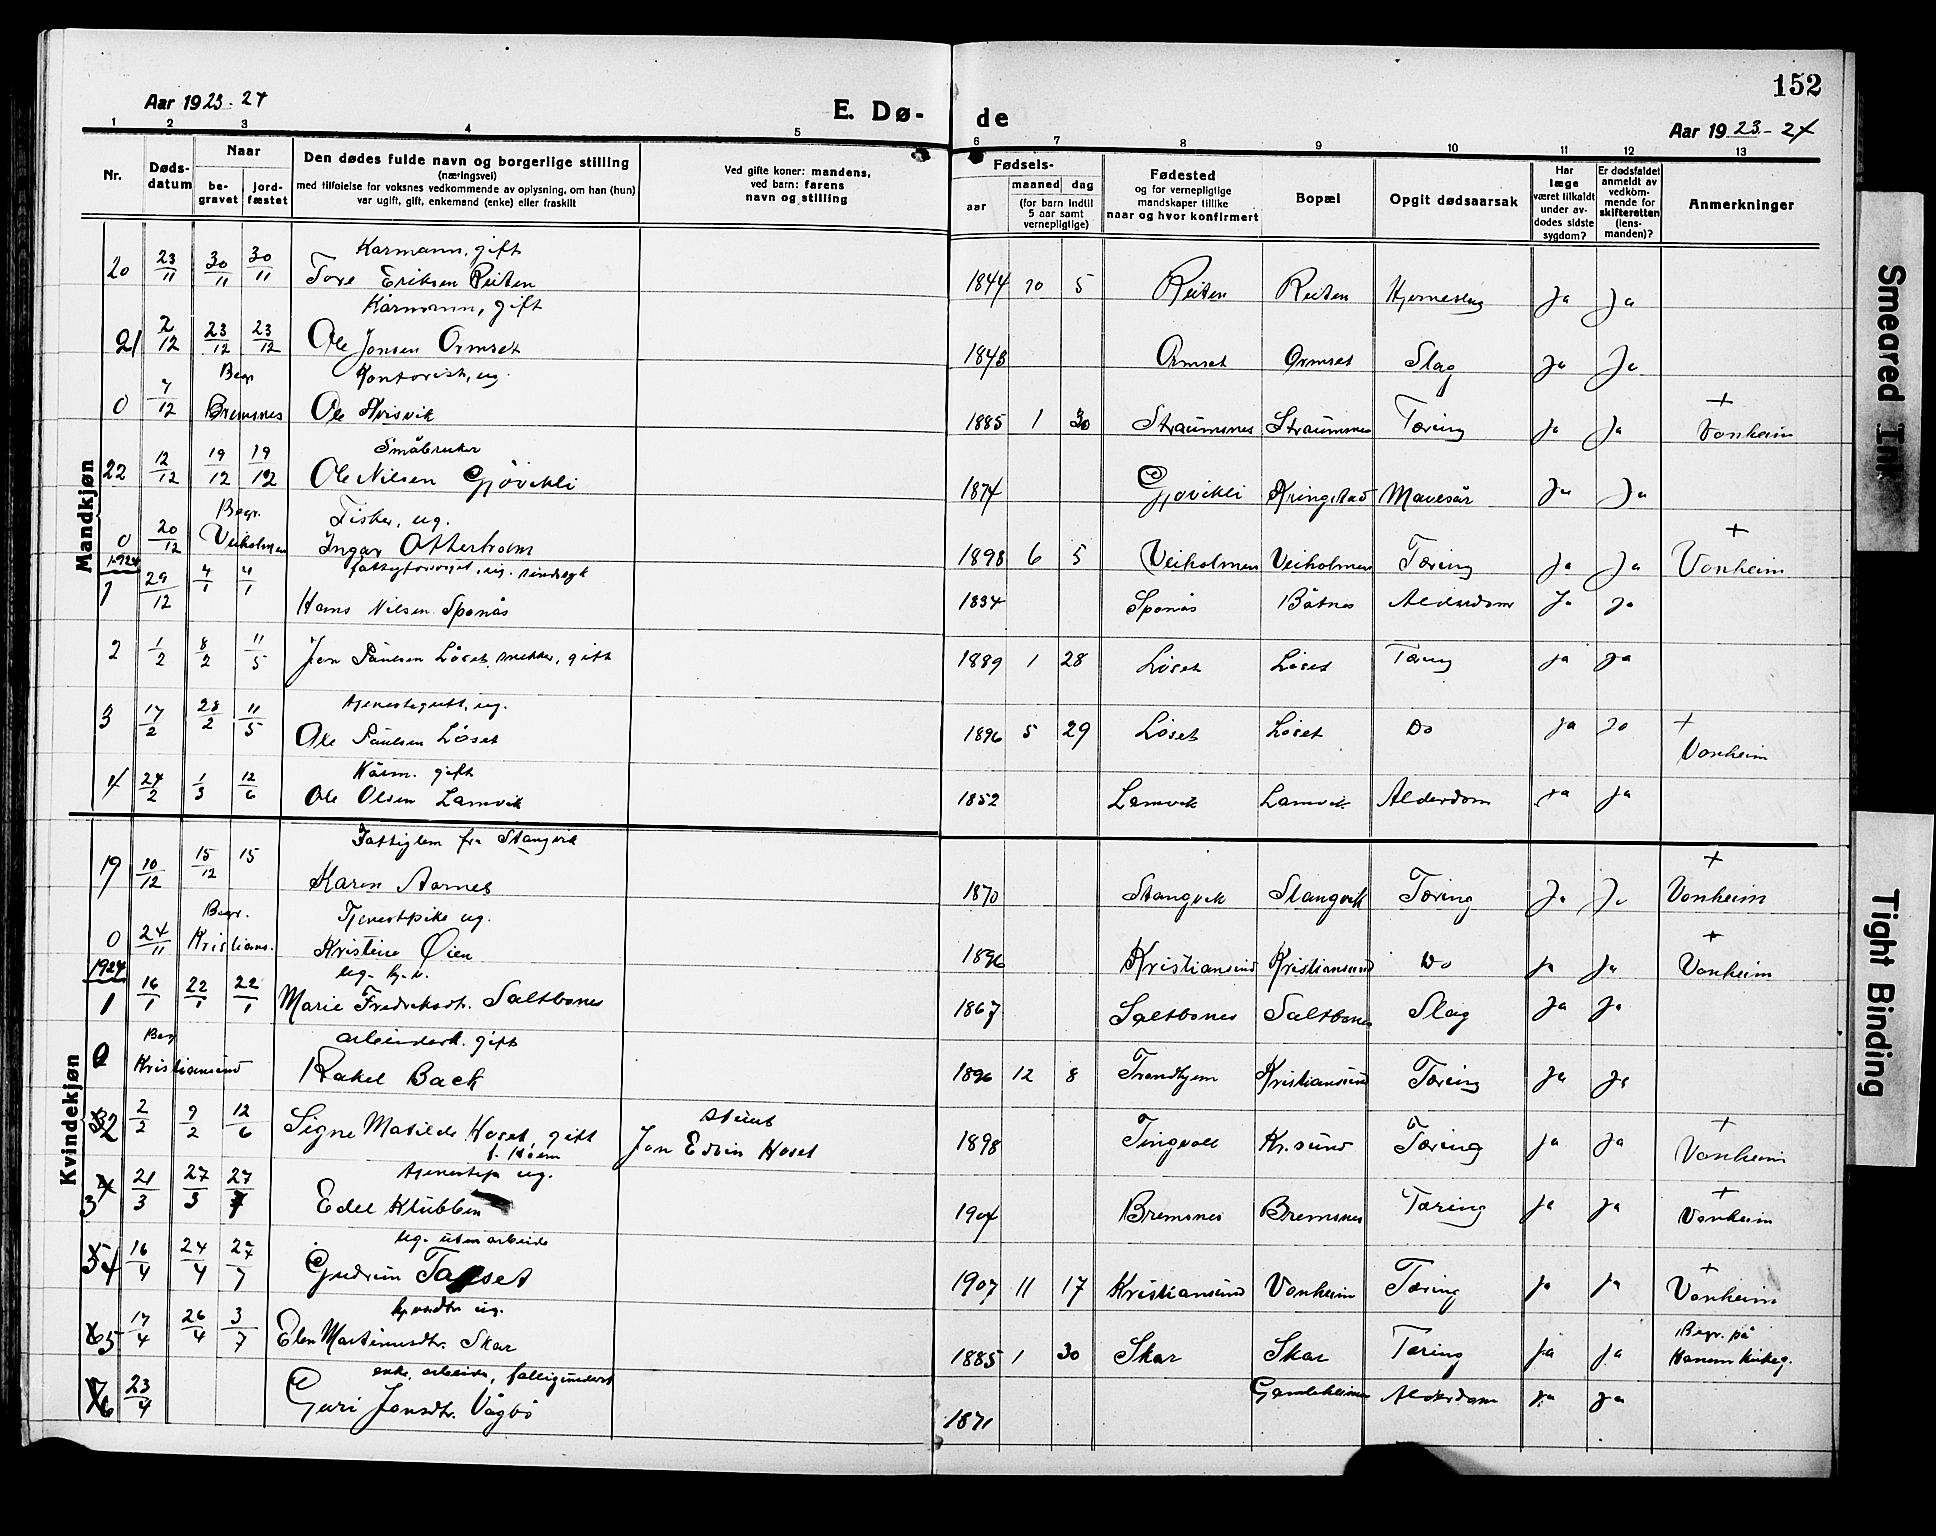 152
Aar 1923-24
E. Dø-
de
Aar 1923-24
1 2 3 4 5 6 7 8 9 10 11 12 13
Nr.
Døds-
datum
Naar
be-
gravet
jord-
fæstet
Den dødes fulde navn og borgerlige stilling
(næringsvei)
med tilføielse for voksnes vedkommende av oplysning, om han (hun)
var ugift, gift, enkemand (enke) eller fraskilt
Ved gifte koner: mandens,
ved barn: farens
navn og stilling
Fødsels-
aar
maaned dag
(for barn indtil
5 aar samt
vernepligtige)
Fødested
og for vernepligtige
mandskaper tillike
naar og hvor konfirmert
Bopæl
Opgit dødsaarsak
Har
læge
været tilkaldt
under av-
dødes sidste
sygdom?
Er dødsfaldet
anmeldt av
vedkom-
mende for
skifteretten
(lens-
manden)?
Anmerkninger
Mandkjøn
Kårmann, gift
20 23/11 30/11 30/11 Tore Eriksen Reiten 1844 10 5 Reiten Reiten Hjerneslag Ja Ja
Kårmann, gift
21 2/12 23/12 23/12 Ole Jonsen Ormset 1843 Ormset Ormset Slag Ja Ja
Begr Kontorist, ug.
0 7/12 Bremsnes Ole Kvisvik 1885 1 30 Straumsnes Straumsnes Tæring Ja Ja + Vonheim
Småbruker
22 12/12 19/12 19/12 Ole Nilsen Gjøvikli 1874 Gjøvikli Kringstad Mavesår Ja Ja
Begr. Fisker, ug.
0 20/12 Veiholmen Ingar Otterholm 1898 6 5 Veiholmen Veiholmen Tæring Ja Ja + Vonheim
1924 fattigforsørget, ug. sindsyk
1 29/12 4/1 4/1 Hans Nilsen Sponås 1834 Sponås Båtnes Alderdom Ja Ja
2 1/2 8/2 11/5 Jon Paulsen Løset, snekker, gift 1889 1 28 Løset Løset Tæring Ja Ja
tjenestegutt, ug.
3 17/2 28/2 11/5 Ole Paulsen Løset 1896 5 29 Løset Løset Do Ja Ja + Vonheim
Kårm. gift
4 24/2 1/3 12/6 Ole Olsen Lamvik 1852 Lamvik Lamvik Alderdom Ja Ja
Kvindekjøn
Fattiglem fra Stangvik
19 10/12 15/12 15 Karen Aarnes 1870 Stangvik Stangvik Tæring Ja Ja + Vonheim
Begr. Tjenestpike ug.
0 24/11 Kristians. Kristine Øien 1896 Kristiansund Kristiansund Do Ja Ja + Vonheim
1924 ug.
1 16/1 22/1 22/1 Marie Fredriksdt. Saltbones 1867 Saltbones Saltbones Slag Ja Ja
Begr arbeiderk. gift
0 Kristiansund Rakel Back 1896 12 8 Trondhjem Kristiansund Tæring Ja Ja
2 2/2 9/2 12/6 Signe Matilde Hoset, gift Jon Edvin Hoset 1898 Tingvoll Kr.sund Tæring Ja Ja + Vonheim
ug.
3 21/3 27/3 27 Edel Klubben 1904 Bremsnes Bremsnes Tæring Ja Ja + Vonheim
ug. uten arbeide
4 16/4 24/4 27/7 Gudrun 1907 11 17 Kristiansund Vonheim Tæring Ja Ja + Vonheim
ug.
5 17/4 26/4 3/7 Elen Martinusdtr. Skar 1885 1 30 Skar Skar Tæring Ja Ja Begr. på Hanem kirkeg.
enke, arbeide, fattigunderst
6 23/4 Guri Jonsdtr. Vågbø 1871 Gamleheimen Alderdom Ja Ja
Smeared Ink.
Tight Binding